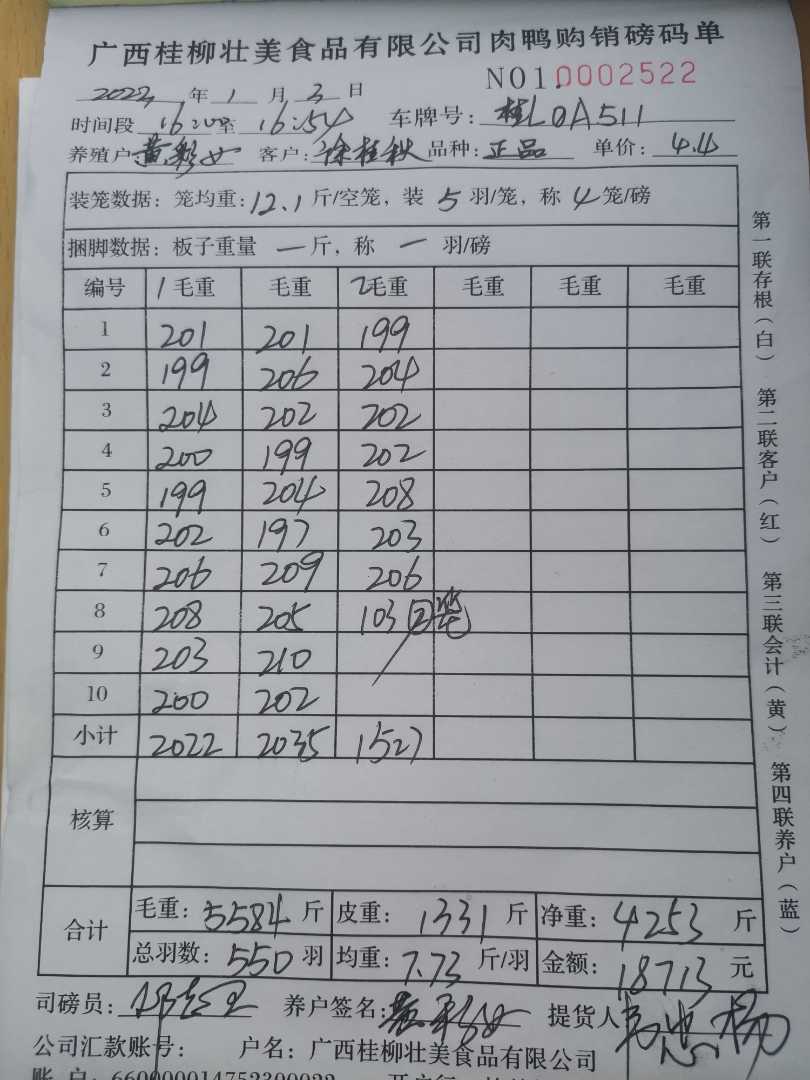 广西桂柳壮美食品有限公司肉鸭购销磅码单
NO1.0002522
2022年 1 月 3 日
时间段 16:20 至 16:54 车牌号: 桂L0A511
养殖户 黄彩女 客户: 徐桂秋 品种: 正品 单价: 4.4
装笼数据: 笼均重: 12.1 斤/空笼, 装 5 羽/笼, 称 4 笼/磅
捆脚数据: 板子重量 一 斤, 称 一 羽/磅
编号 1 毛重 毛重 2 毛重 毛重 毛重 毛重
1 201 201 199
2 199 206 204
3 204 202 202
4 200 199 202
5 199 204 208
6 202 197 203
7 206 209 206
8 208 205 103 ②笼
9 203 210
10 200 202
小计 2022 2035 1527
核算
合计 毛重: 5584 斤 皮重: 1331 斤 净重: 4253 斤
总羽数: 550 羽 均重: 7.73 斤/羽 金额: 18713 元
司磅员: 养户签名: 黄彩女 提货人
公司汇款账号: 户名: 广西桂柳壮美食品有限公司
账 户: 660000014752300022
第一联存根(白) 第二联客户(红) 第三联会计(黄) 第四联养户(蓝)